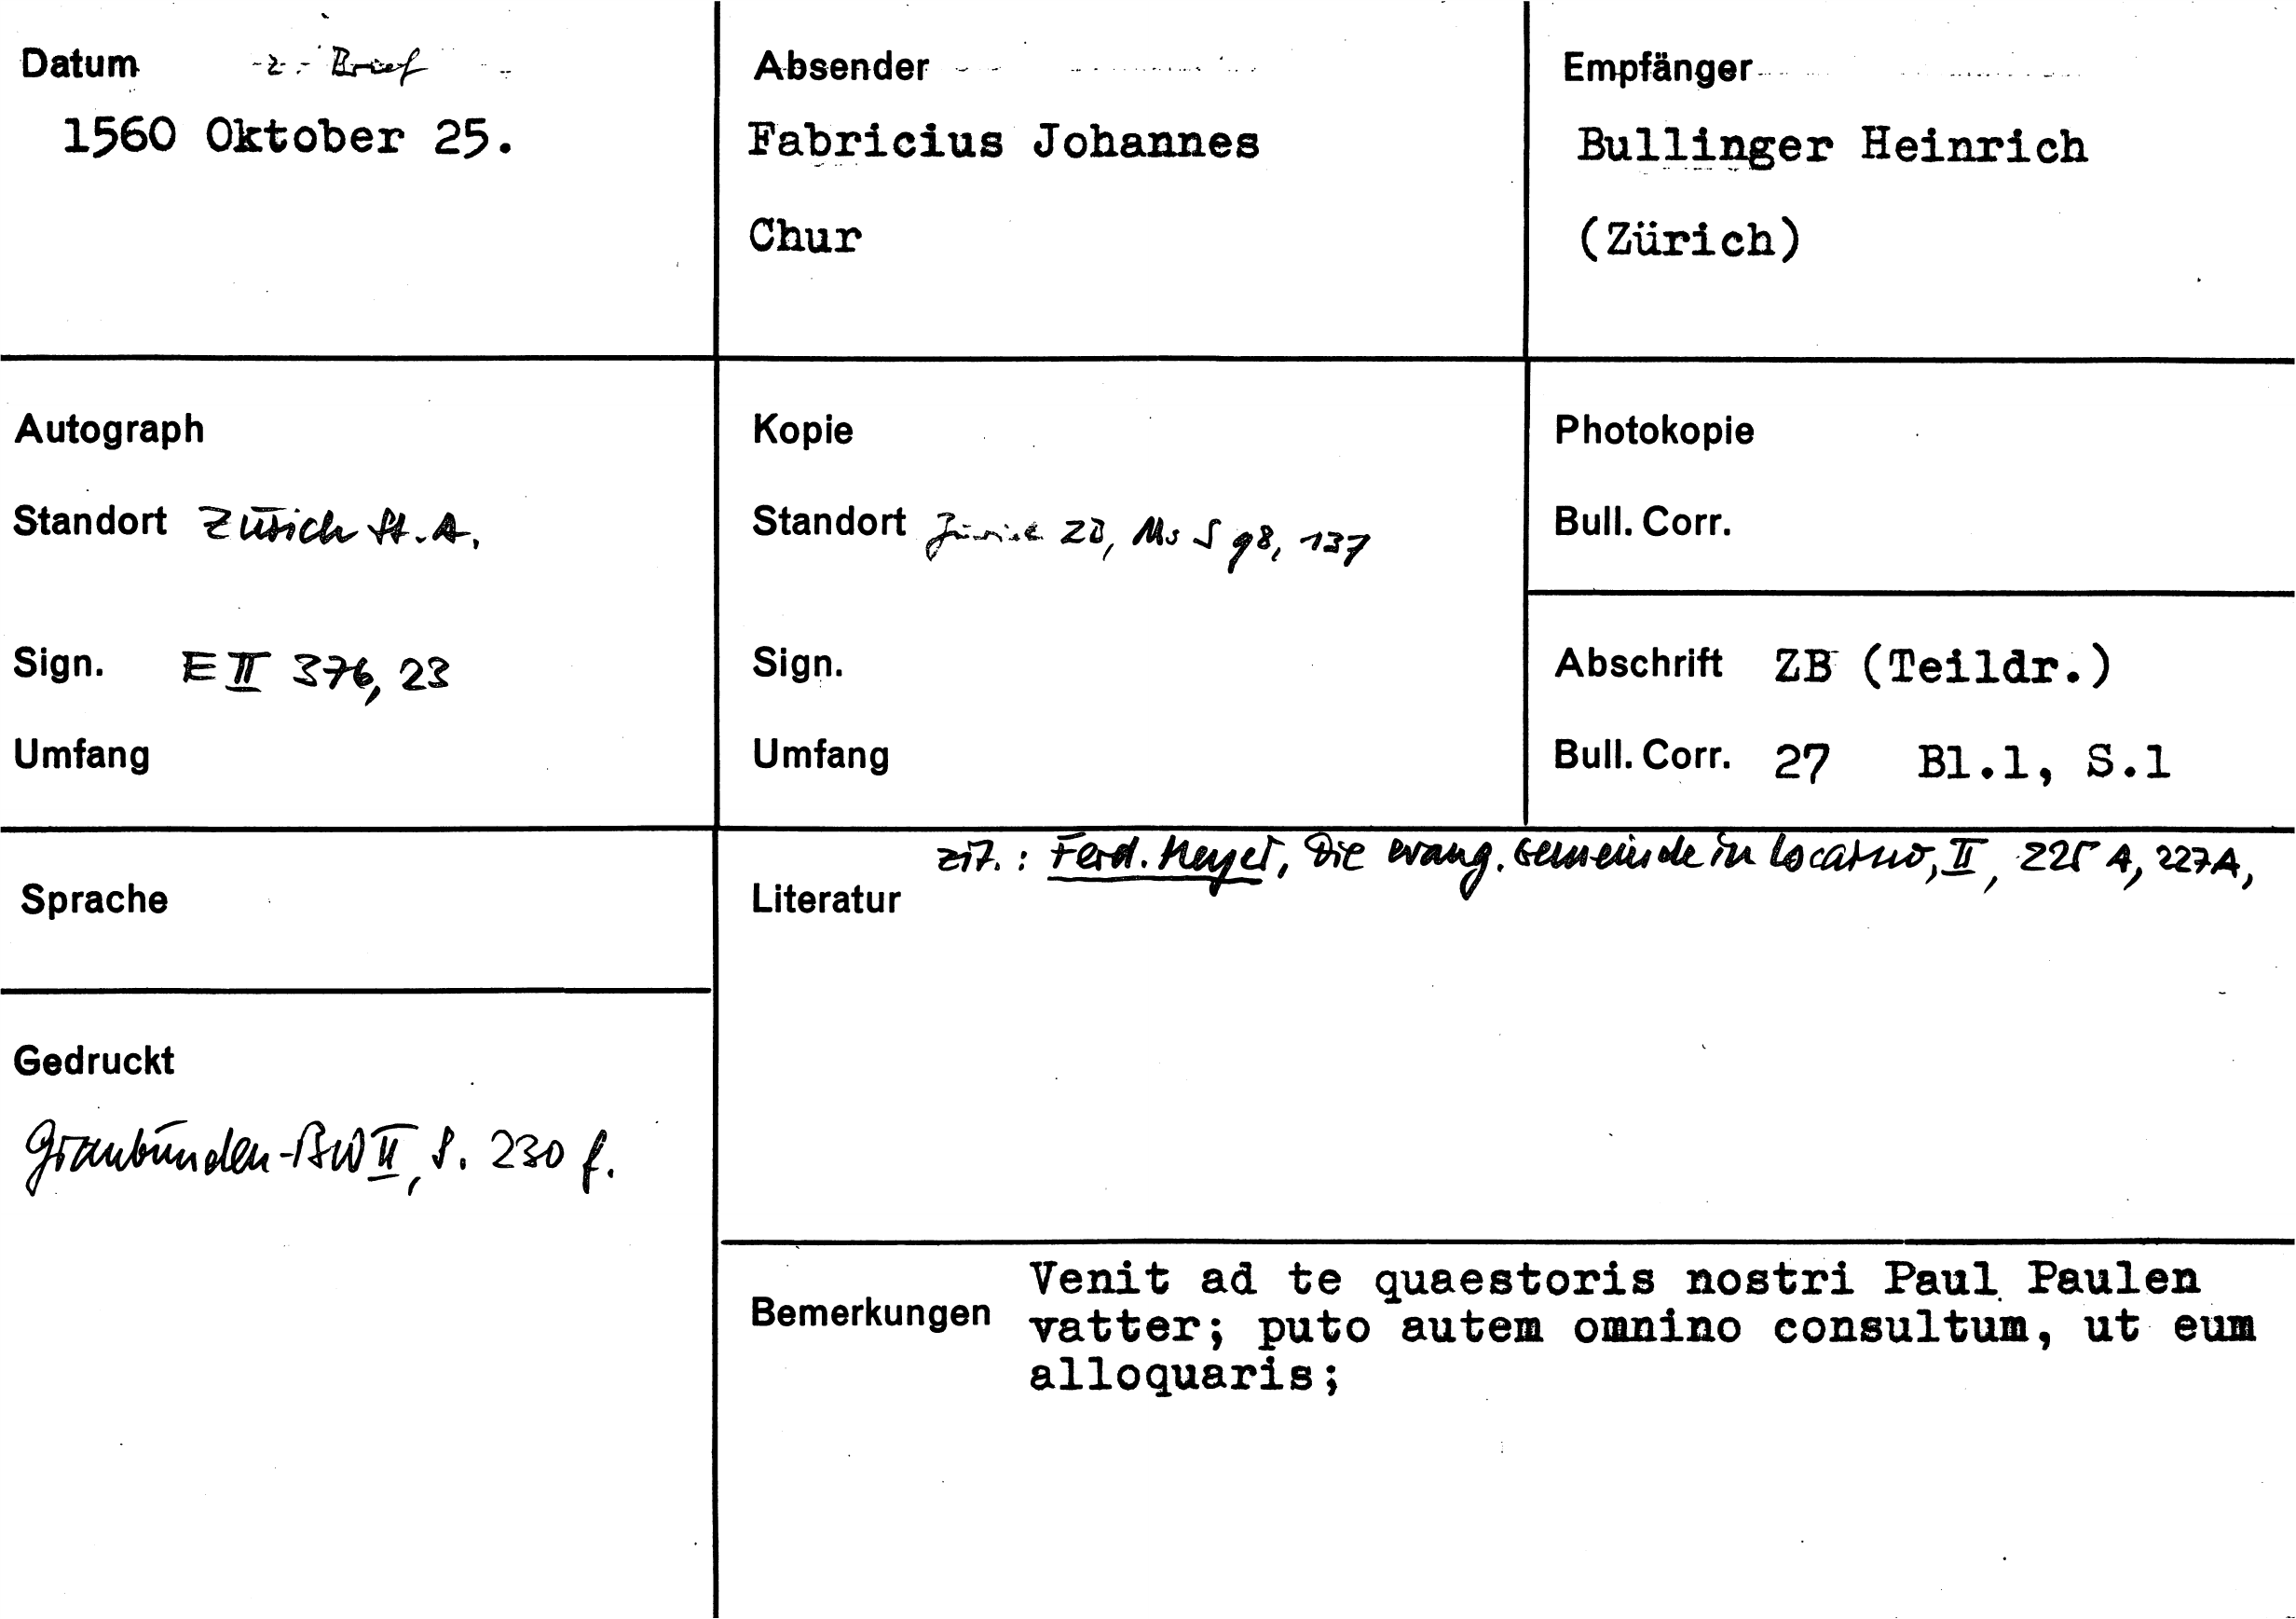 Datum - 2. Brief
1560 Oktober 25.
Absender
Fabricius Johannes
Chur
Empfänger
Bullinger Heinrich
(Zürich)
Autograph
Standort Zürich St.A.
Sign. E II 376, 23
Umfang
Kopie
Standort Zürich ZB, Ms S 98, 137
Sign.
Umfang
Photokopie
Bull. Corr.
Abschrift ZB (Teildr.)
Bull. Corr. 27 Bl.1, S.1
Sprache
Gedruckt
Graubünden-BW II, S. 230 f.
zit.: Ferd. Meyer, Die evang. Gemeinde in Locarno, II, 225 A, 227A,
Literatur
Bemerkungen
Venit ad te quaestoris nostri Paul Paulen
vatter; puto autem omnino consultum, ut eum
alloquaris;